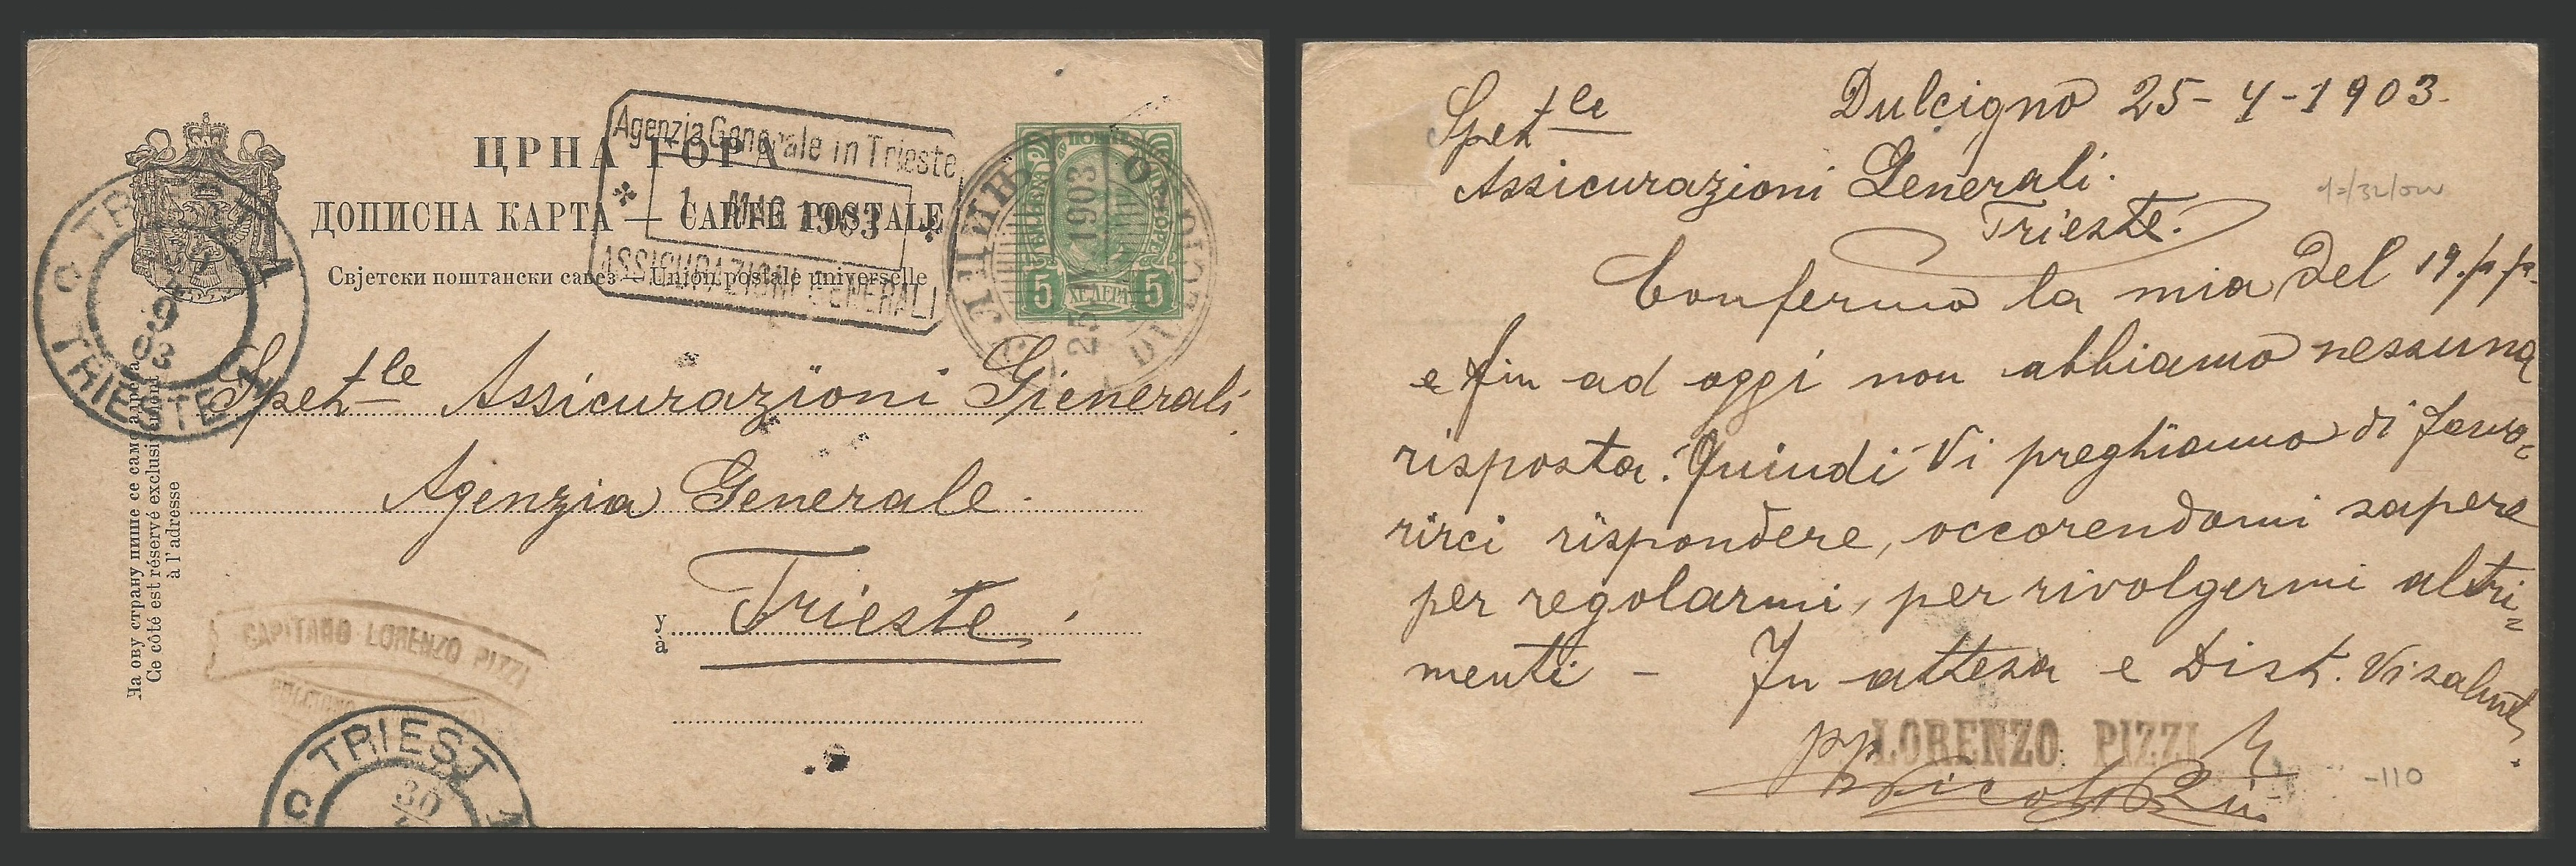 ЦРНА ГОРА
ДОПИСНА КАРТА — CARTE POSTALE
Свјетски поштански савез — Union postale universelle
Agenzia Generale in Trieste
1 MAG 1903
ASSICURAZIONI GENERALI
5 ХЕЛЕРА 5
25 1903
TRIEST
9
03
TRIESTE
Spet.le Assicurazioni Gienerali
Agenzia Generale.
у
à
Trieste
На ову страну пише се само адреса
Ce côté est réservé exclusivement
à l'adresse
CAPITANO LORENZO PIZZI
TRIEST
30
Dulcigno 25-4-1903.
Spet.le
Assicurazioni Generali.
Trieste.
Confermo la mia del 19.p.p.
e fin ad oggi non abbiamo nessuna
risposta. Quindi Vi preghiamo di favo=
rirci rispondere, occorendomi sapere
per regolarmi, per rivolgermi altri=
menti - In attesa e Dist. Vi saluto
pp LORENZO PIZZI
-110